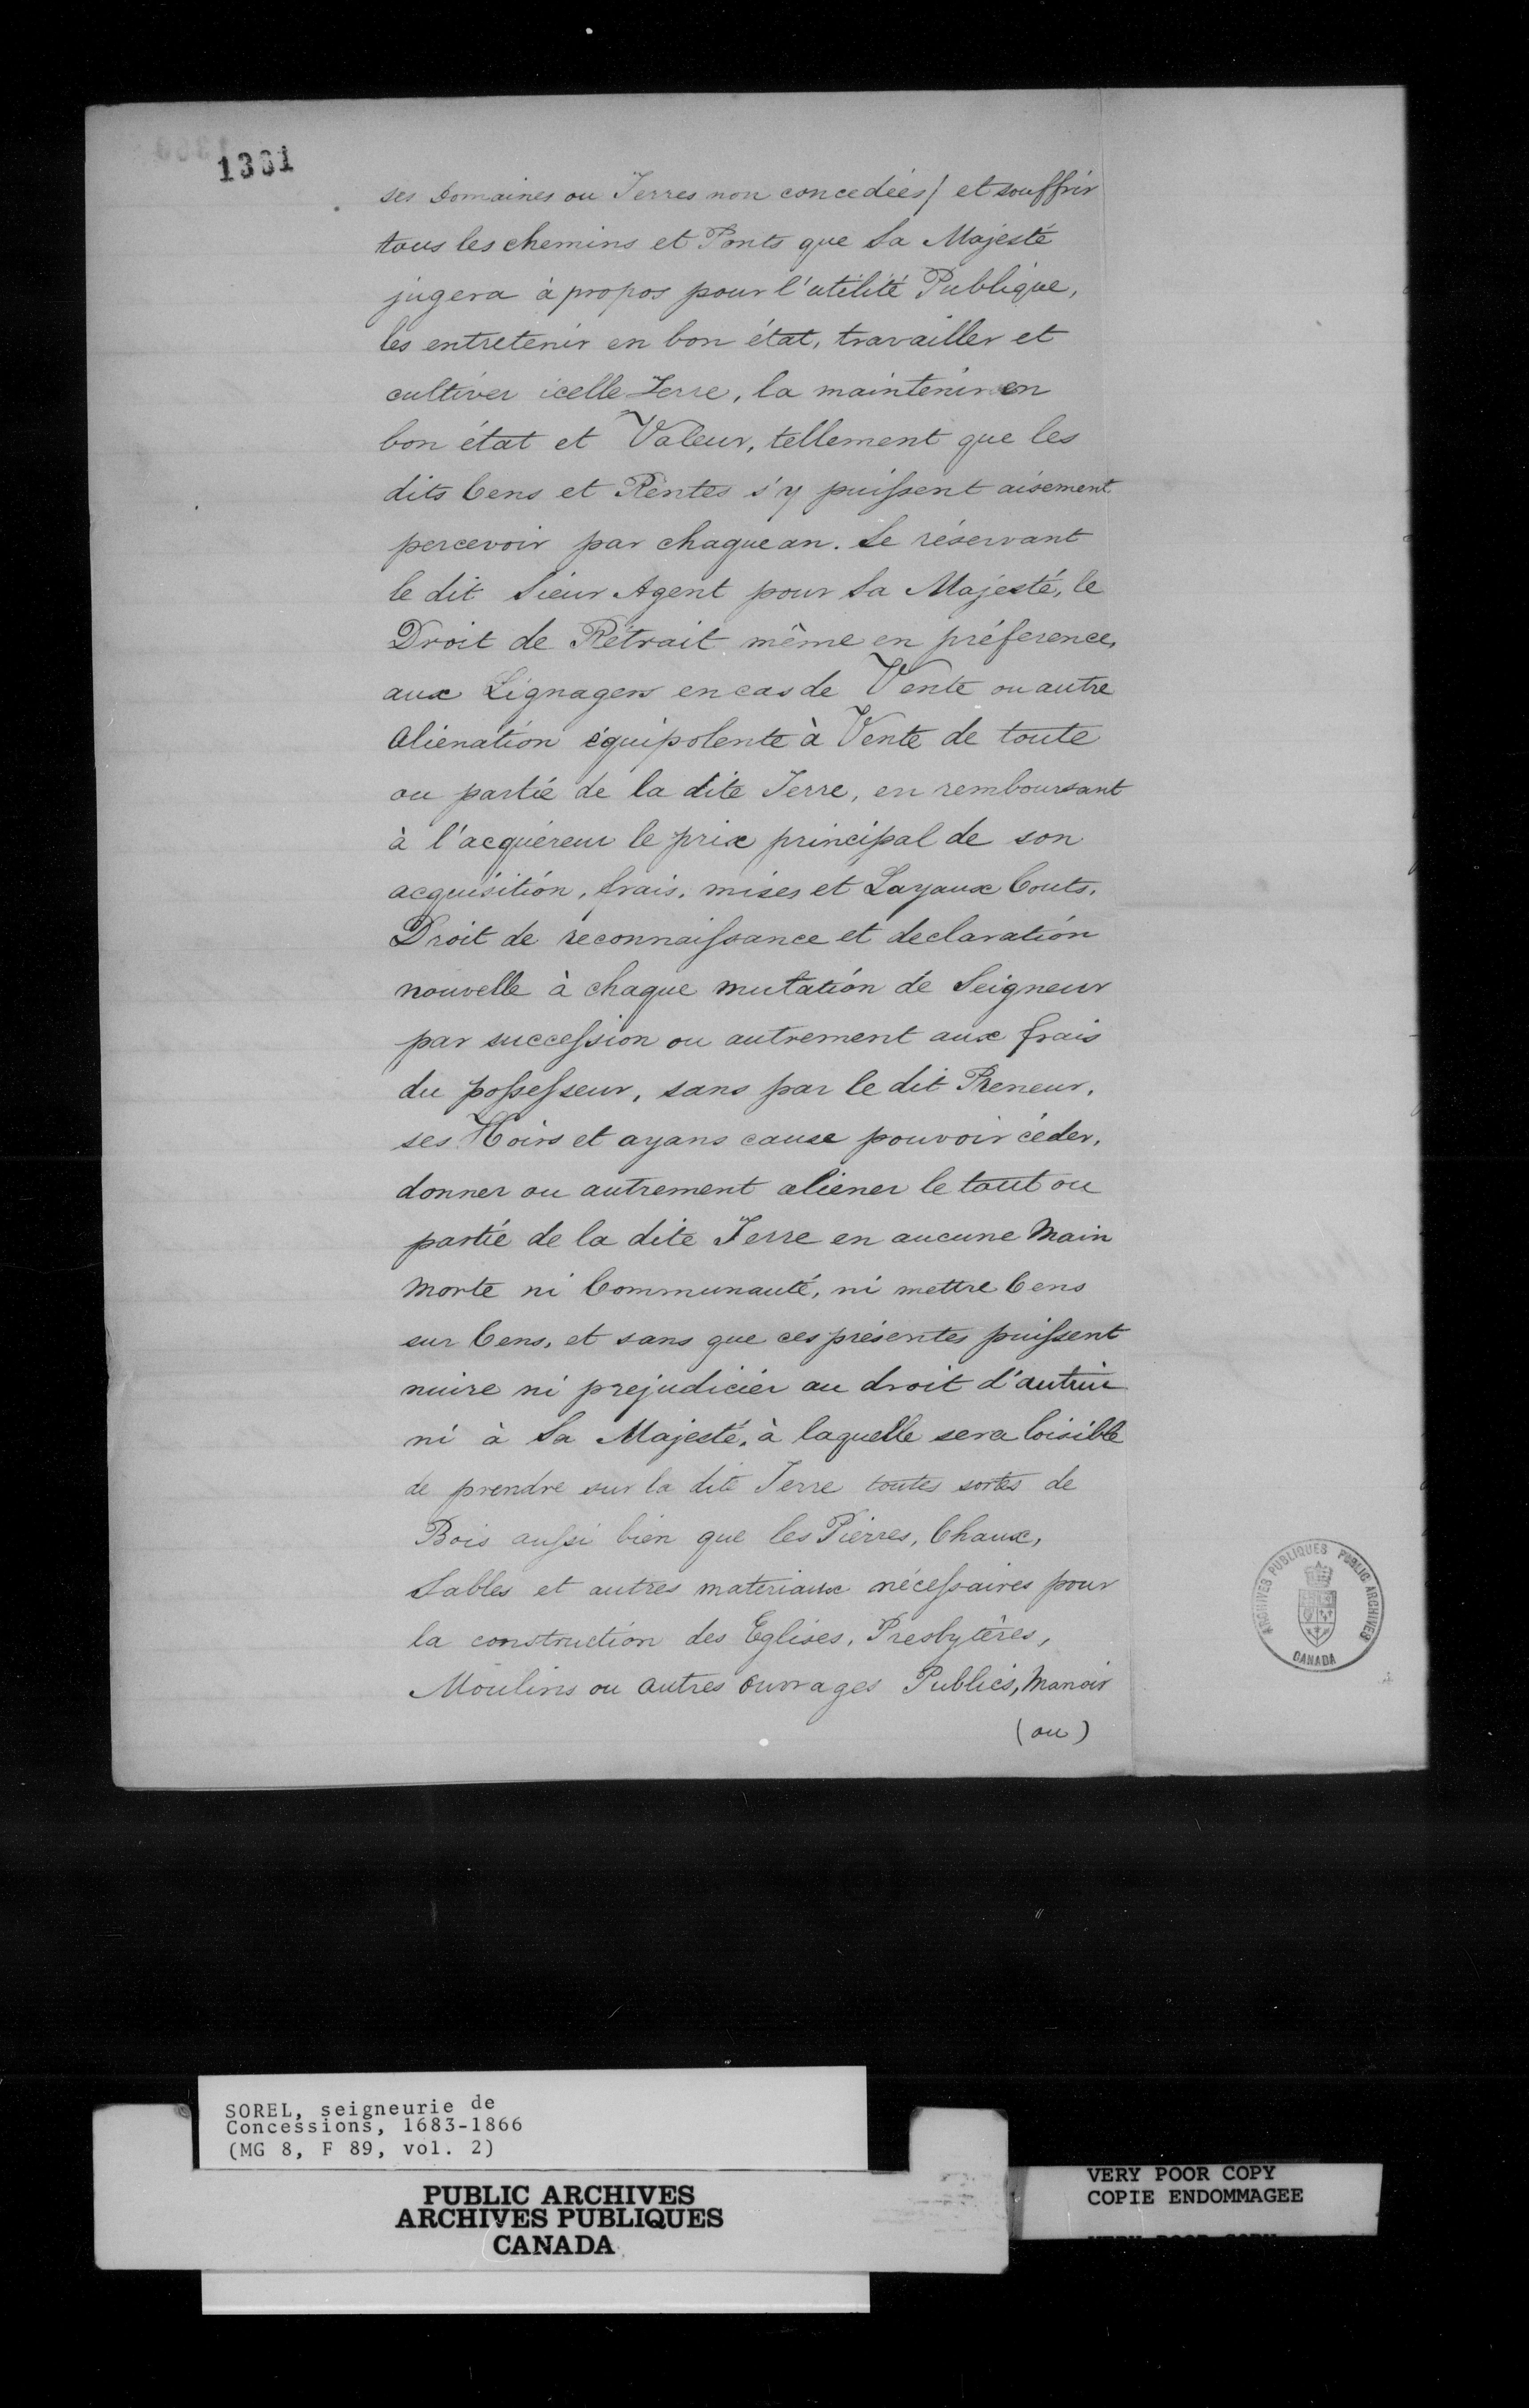 1361
ses Domaines ou Terres non concedées) et souffrir
tous les chemins et Ponts que Sa Majesté
jugera à propos pour l'utilité Publique,
les entretenir en bon état, travailler et
cultiver icelle Terre, la maintenir en
bon état et Valeur, tellement que les
dits Cens et Rentes s'y puissent aisement
percevoir par chaque an. Se réservant
le dit Sieur Agent pour Sa Majesté, le
Droit de Rétrait même en préference,
aux Lignagers en cas de Vente ou autre
Alienation équipolente à Vente de toute
ou partie de la dite Terre, en remboursant
à l'acquéreur le prix principal de son
acquisition, frais, mises et Layaux Couts,
Droit de reconnaissance et declaration
nouvelle à chaque mutation de Seigneur
par succession ou autrement aux frais
du possesseur, sans par le dit Preneur,
ses Hoirs et ayans cause pouvoir céder,
donner ou autrement aliener le tout ou
partie de la dite Terre en aucune Main
Morte ni Communauté, ni mettre Cens
sur Cens, et sans que ces présentes puissent
nuire ni prejudicier au droit d'autrui
ni à Sa Majesté, à laquelle sera loisible
de prendre sur la dite Terre toutes sortes de
Bois aussi bien que les Pierres, Chaux,
Sables et autres materiaux nécessaires pour
la construction des Eglises, Presbytères,
Moulins ou autres ouvrages Publics, Manoir
(ou)
ARCHIVES PUBLIQUES PUBLIC ARCHIVES
CANADA
SOREL, seigneurie de
Concessions, 1683-1866
(MG 8, F 89, vol. 2)
PUBLIC ARCHIVES
ARCHIVES PUBLIQUES
CANADA
VERY POOR COPY
COPIE ENDOMMAGEE
VERY POOR COPY